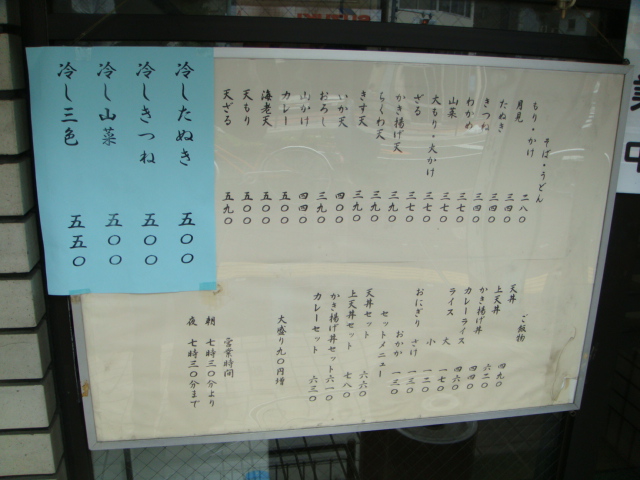 そば・うどん
もり・かけ 二八〇
月見 三四〇
たぬき 三四〇
きつね 三四〇
わかめ 三七〇
山菜 三七〇
大もり・大かけ 三七〇
ざる 三七〇
かき揚げ天 三九〇
ちくわ天 三九〇
きす天 三九〇
いか天 四〇〇
おろし 三九〇
山かけ 四四〇
カレー 五〇〇
海老天 五〇〇
天もり 五〇〇
天ざる 五九〇
冷したぬき 五〇〇
冷しきつね 五〇〇
冷し山菜 五〇〇
冷し三色 五五〇
ご飯物
天丼 四九〇
上天丼 六二〇
かき揚げ丼 四四〇
カレーライス 四六〇
ライス 大 一七〇
小 一二〇
おにぎり さけ 一三〇
おかか 一三〇
セットメニュー
天丼セット 六六〇
上天丼セット 七八〇
かき揚げ丼セット 六一〇
カレーセット 六三〇
大盛り九〇円増
営業時間
朝 七時三〇分より
夜 七時三〇分まで